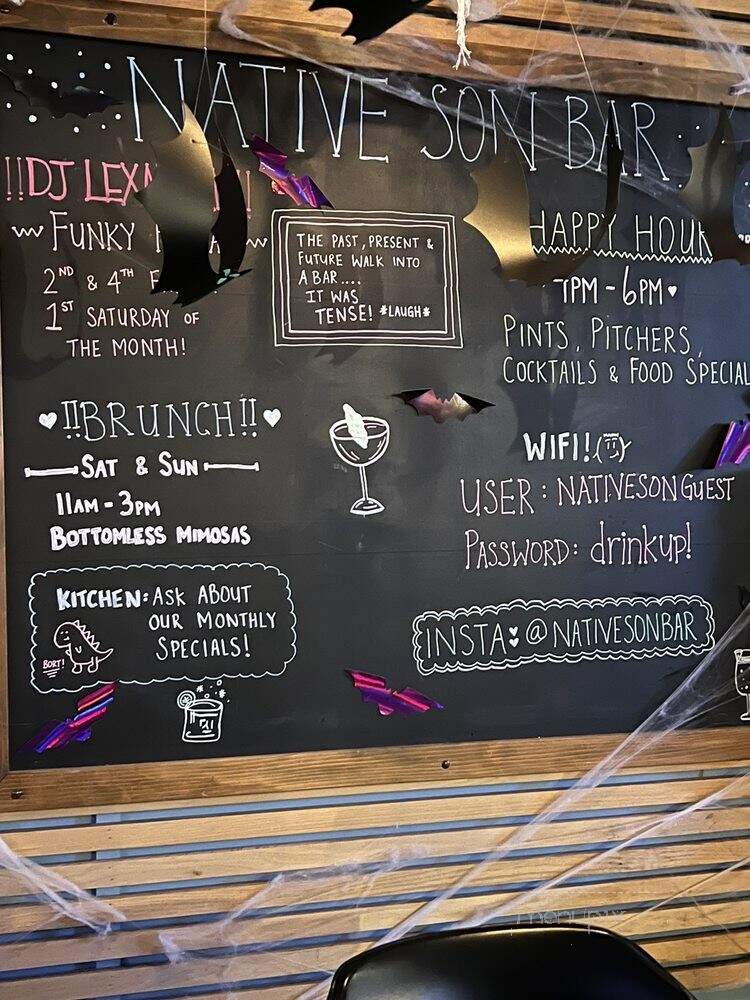 NATIVE SON BAR
!!DJ
FUNKY
2ND & 4TH
1ST SATURDAY OF
THE MONTH!
THE PAST, PRESENT &
FUTURE WALK INTO
A BAR....
IT WAS
TENSE! *LAUGH*
HAPPY HOUR
PM - 6PM
PINTS, PITCHERS,
COCKTAILS & FOOD SPECIAL
!!BRUNCH!!
SAT & SUN
11AM - 3PM
BOTTOMLESS MIMOSAS
WIFI!
USER: NATIVESONGUEST
PASSWORD: drinkup!
KITCHEN: ASK ABOUT
OUR MONTHLY
SPECIALS!
BORT!
INSTA: @NATIVESONBAR
menupix